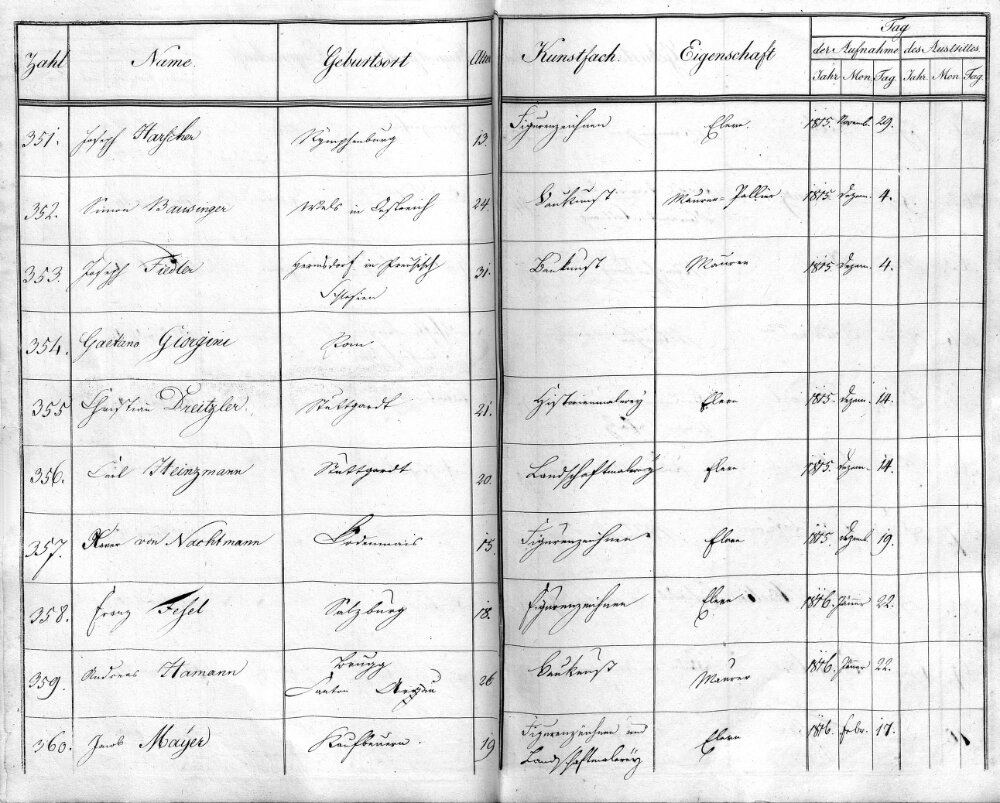 Zahl Name. Geburtsort Alter Kunstfach. Eigenschaft Tag
der Aufnahme des Austrittes.
Jahr Mon Tag Jahr Mon Tag.
351. Joseph Harscher Nymphenburg 13. Figurenzeichnen Eleve. 1815. Novemb. 29.
352. Simon Bausinger Wels in Östreich 24. Baukunst Maurer-Pallier 1815 Dezem. 4.
353. Joseph Fiedler Hermsdorf in Preüsisch 31. Baukunst Maurer 1815 Dezem. 4.
Schlesien
354. Gaetano Giorgini Rom
355 Christian Dreitzler. Stuttgardt 21. Historienmalerey Eleve 1815. Dezem. 14.
356. Carl Heinzmann Stuttgardt 20. Landschaftmalerey Eleve 1815. Dezem. 14
357. von Nachtmann Bodenmais 15 Figurenzeichnen Eleve 1815 Dezemb 19.
358. Franz Feßel Salzburg 18. Figurenzeichnen Eleve 1816. Jänner 22.
359. Andreas Hamann Brugg 26 Baukunst Maurer 1816. Jänner 22.
Canton Argau
360. Jacob Mayer Kaufbeuern. 19 Figurenzeichnen und Eleve 1816 Febr. 17.
Landschaftmalerey